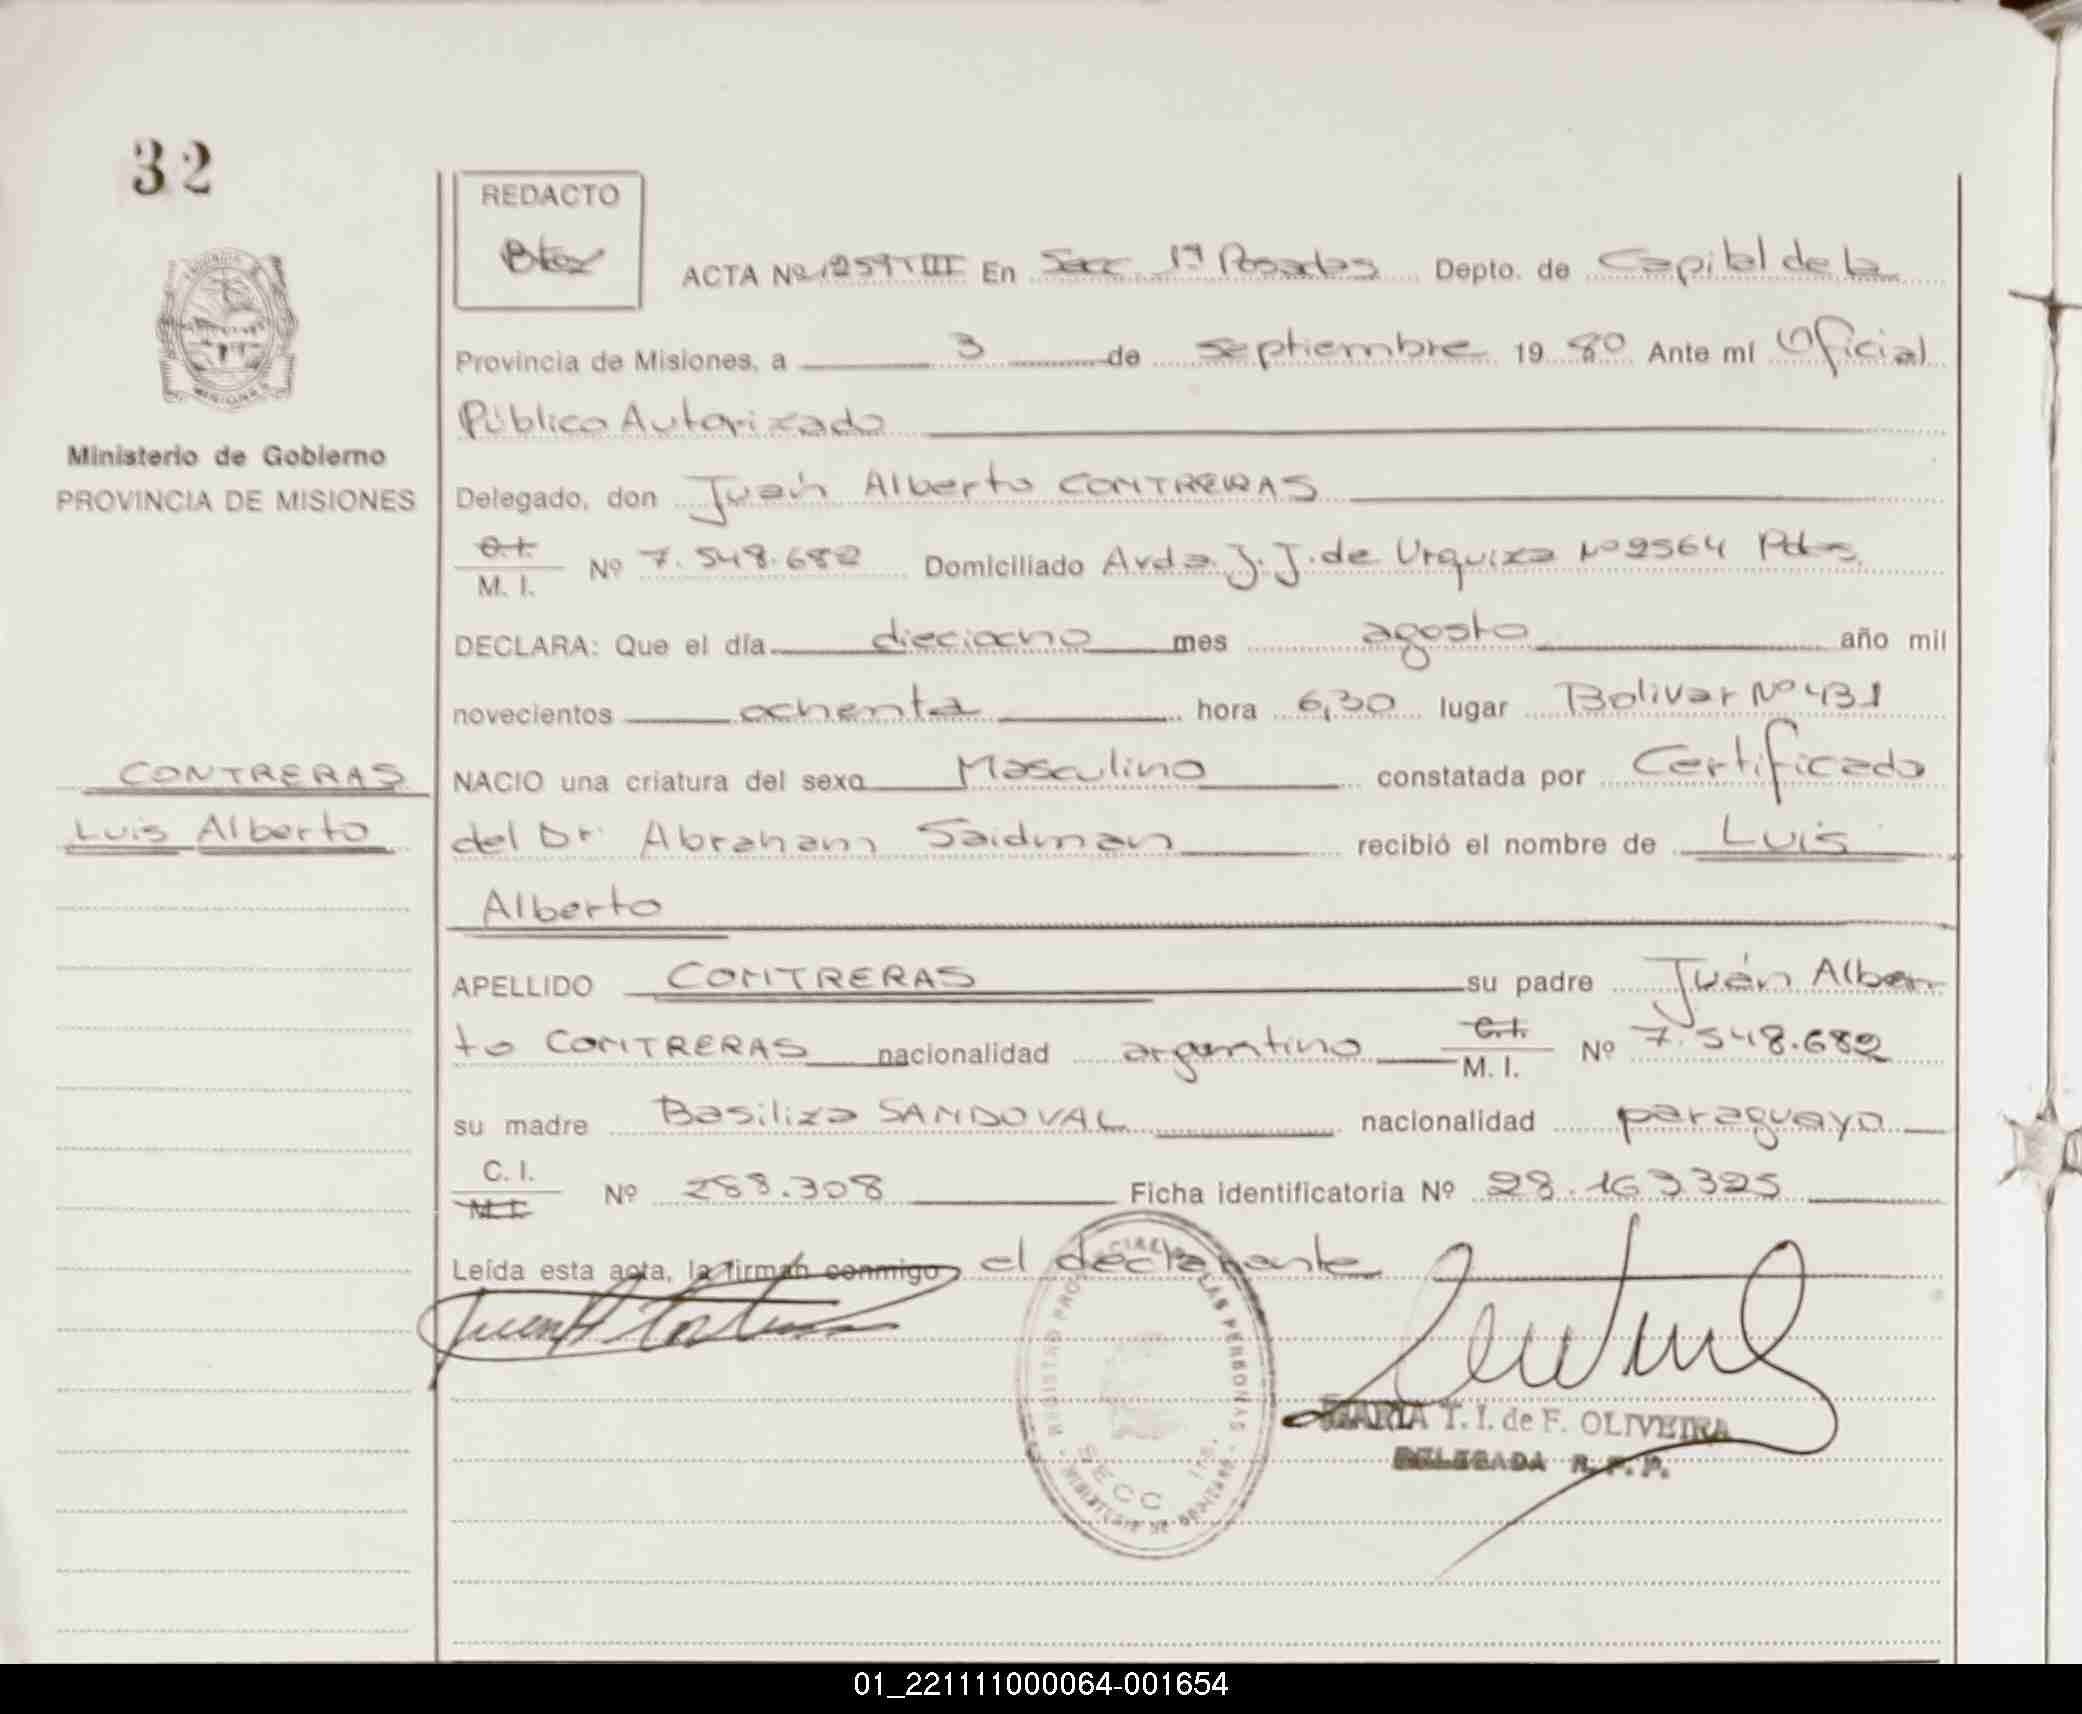 32
REDACTO
ACTA Nº 1259 T III En Secc 1ª Posadas Depto. de Capital de la
Provincia de Misiones, a 3 de septiembre 1980 Ante mí Oficial
Público Autorizado
Ministerio de Gobierno
PROVINCIA DE MISIONES
Delegado, don Juán Alberto CONTRERAS
C.I.
M. I. Nº 7.548.682 Domiciliado Avda. J. J. de Urquiza Nº 2564 Pdas.
DECLARA: Que el día dieciocho mes agosto año mil
novecientos ochenta hora 6,30 lugar Bolivar Nº 431
CONTRERAS
Luis Alberto
NACIO una criatura del sexo Masculino constatada por Certificado
del Dr. Abraham Saidman recibió el nombre de Luis
Alberto
APELLIDO CONTRERAS su padre Juán Alber
to CONTRERAS nacionalidad argentino C.I.
M. I. Nº 7.548.682
su madre Basiliza SANDOVAL nacionalidad paraguaya
C. I.
M. I. Nº 288.308 Ficha identificatoria Nº 28.163325
Leída esta acta, la firman conmigo el declarante
MARIA T. I. de F. OLIVEIRA
DELEGADA R. P. P.
SECC 1ra.
01_221111000064-001654